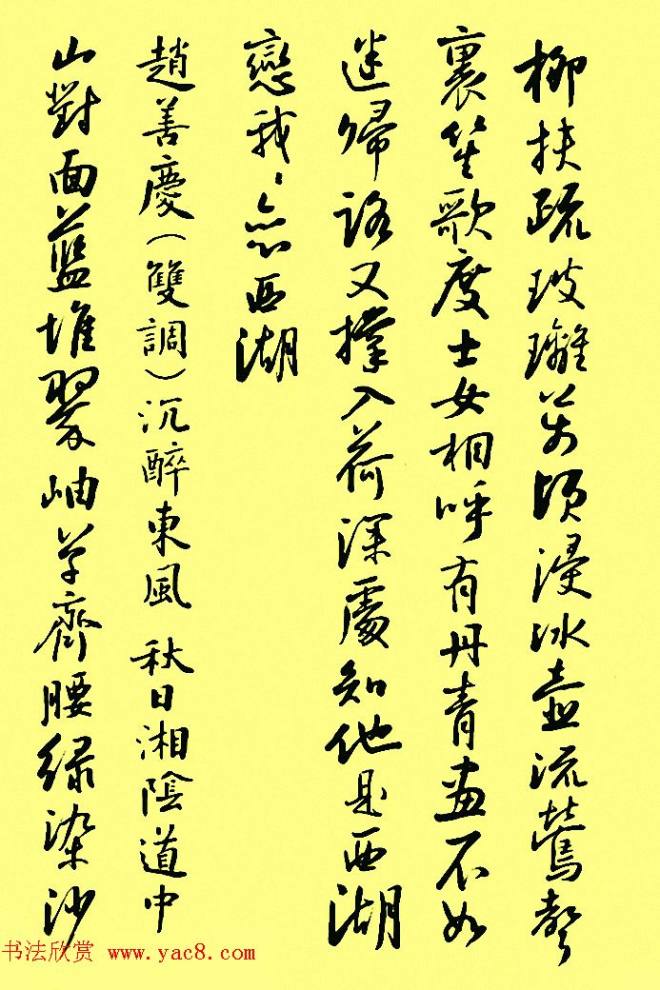 柳扶疏玻璃万頃浸冰壺流鶯聲
裏笙歌度士女相呼有丹青画不如
迷歸路又撑入荷深處知他是西湖
戀我、恋西湖
趙善慶（雙調）沉醉東風 秋日湘陰道中
山對面藍堆翠岫草齊腰緑染沙
书法欣赏 www.yac8.com